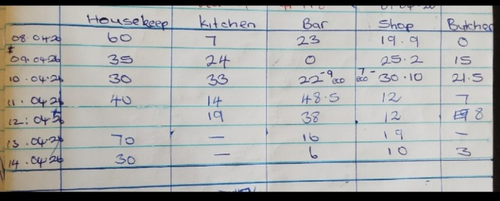 Housekeep Kitchen Bar Shop Butcher
08.04.26 60 7 23 19.9 0
09.04.26 35 24 0 25.2 15
10.04.26 30 33 22 30.10 21.5
11.04.26 40 14 48.5 12 7
12.04.26 19 38 12 8
13.04.26 70 — 16 19 —
14.04.26 30 — 6 10 3